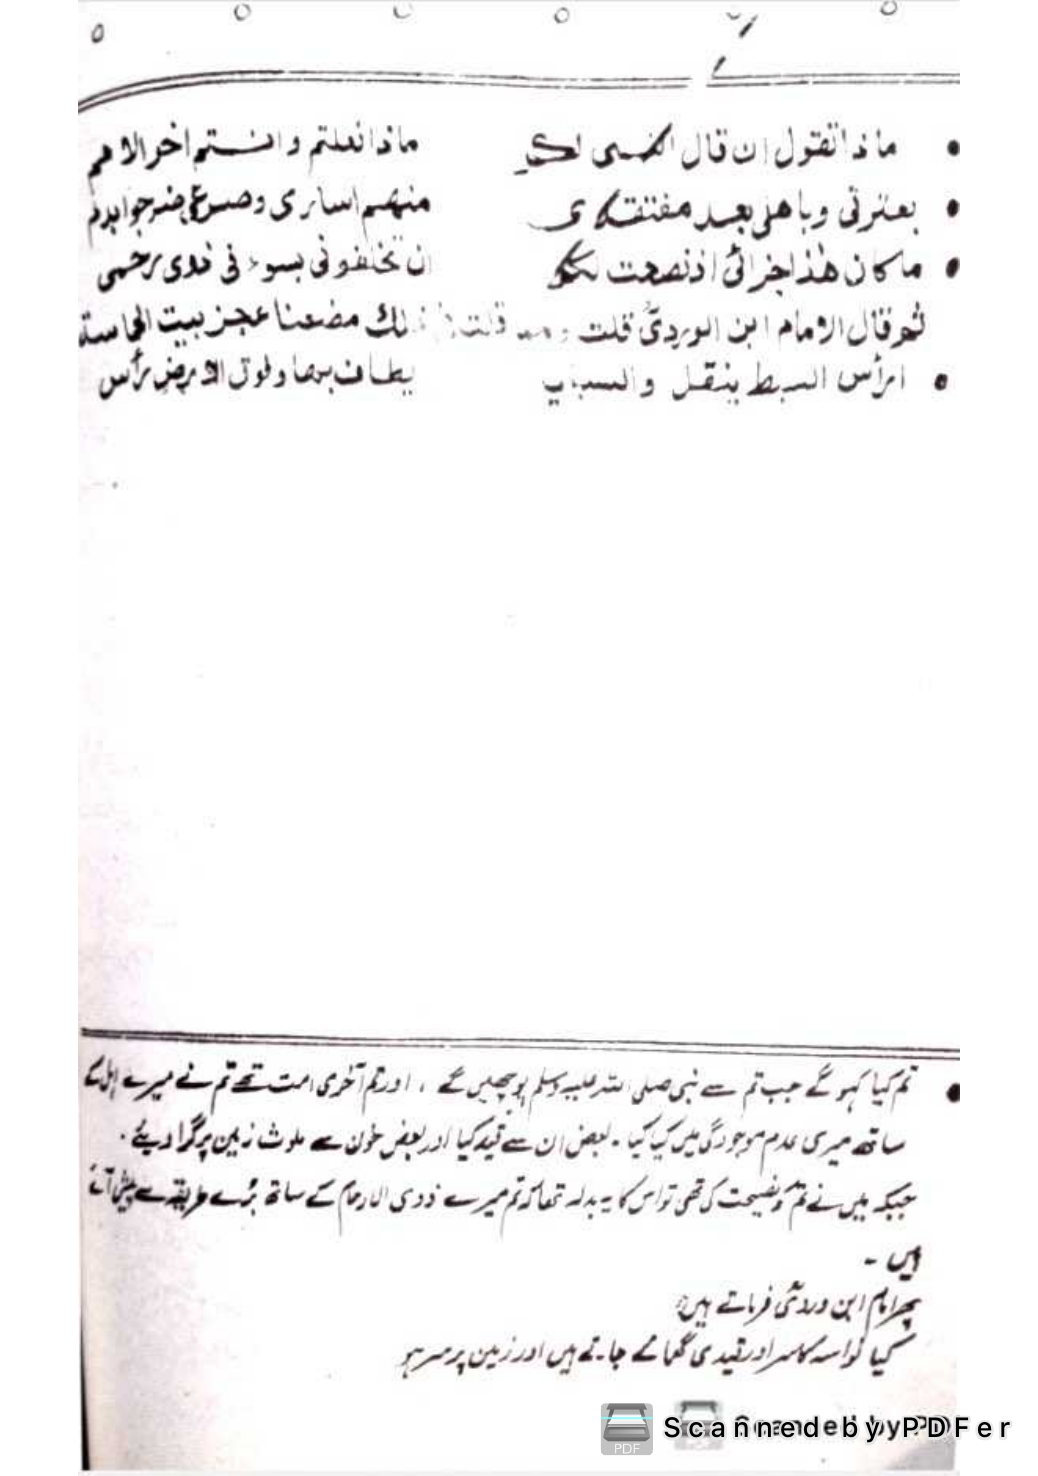 ماذا تقول ان قال النبی لکم ماذا فعلتم و انتم اخر الامم
بعترتی و باهلی بعد مفتقدی منهم اساری و صرعی ضرجوا بدم
ما کان هٰذا جزائی اذ نصحت لکم ان تخلفونی بسوء فی ذوی رحمی
ثم قال الامام ابن الوردیؒ قلت قلت مضعنا عجز بیت الحماسة
ارأس السبط ینقل والسبایا یطاف بها وفوق الارض رأس
تم کیا کہو گے جب تم سے نبی صلی اللہ علیہ وسلم پوچھیں گے ، اور تم آخری امت تھے تم نے میرے اہل کے
ساتھ میری عدم موجودگی میں کیا کیا ۔ بعض ان سے قید کیا اور بعض خون سے ملوث زمین پر گرا دیئے .
جبکہ میں نے تم کو نصیحت کی تھی تو اس کا یہ بدلہ تھا کہ تم میرے ذوی الارحام کے ساتھ بُرے طریقے سے پیش آئے
ہیں ۔
پھر امام ابن وردیؒ فرماتے ہیں
کیا نواسہ کا سر اور قیدی گھمائے جاتے ہیں اور زمین پر سر ہو
Scanned by PDFer